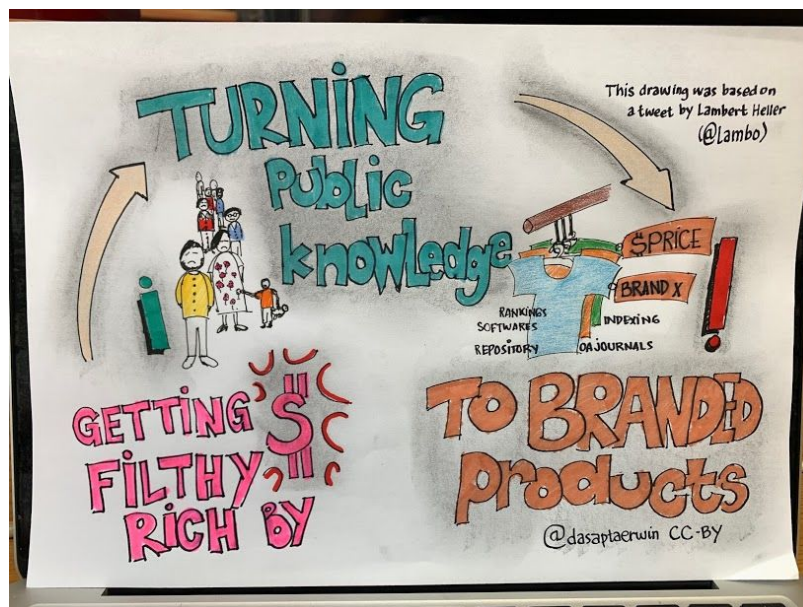 This drawing was based on
a tweet by Lambert Heller
(@lambo)
TURNING
PUbLic
knowLedge
i
$PRICE
BRAND X
RANKINGS
SOFTWARES
REPOSITORY
INDEXING
OA JOURNALS
!
GETTING $
FILTHY
RICH BY
TO BRANDED
products
@dasaptaerwin CC-BY